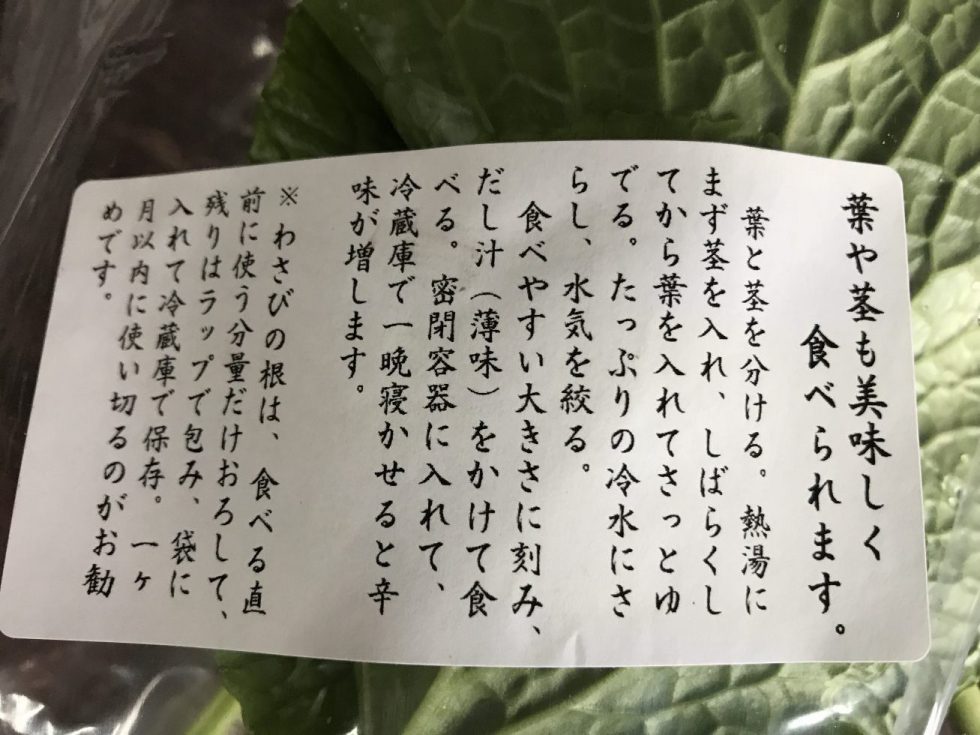 葉や茎も美味しく
食べられます。
葉と茎を分ける。熱湯に
まず茎を入れ、しばらくし
てから葉を入れてさっとゆ
でる。たっぷりの冷水にさ
らし、水気を絞る。
食べやすい大きさに刻み、
だし汁（薄味）をかけて食
べる。密閉容器に入れて、
冷蔵庫で一晩寝かせると辛
味が増します。
※わさびの根は、食べる直
前に使う分量だけおろして、
残りはラップで包み、袋に
入れて冷蔵庫で保存。一ヶ
月以内に使い切るのがお勧
めです。